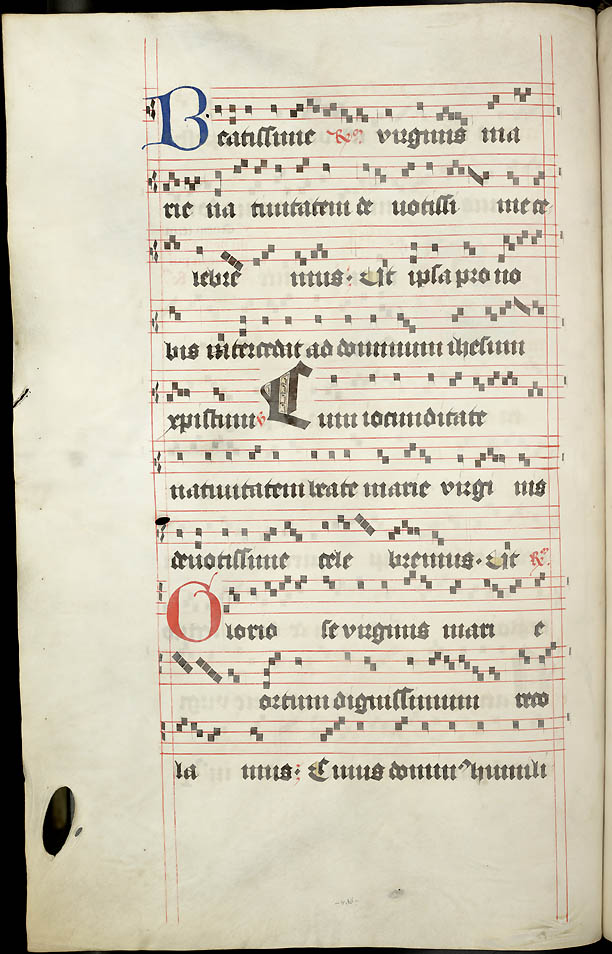 Beatissime R̃ virginis ma
rie na tiuitatem de uotissi me ce
lebre mus: Ut ipsa pro no
bis intercedat ad dominum ihesum
xpistum v Cum iocunditate
natiuitatem beate marie virgi nis
deuotissime cele bremus. Ut R̃
Glorio se virginis mari e
ortum dignissimum reco
la mus: Cuius domin' humili